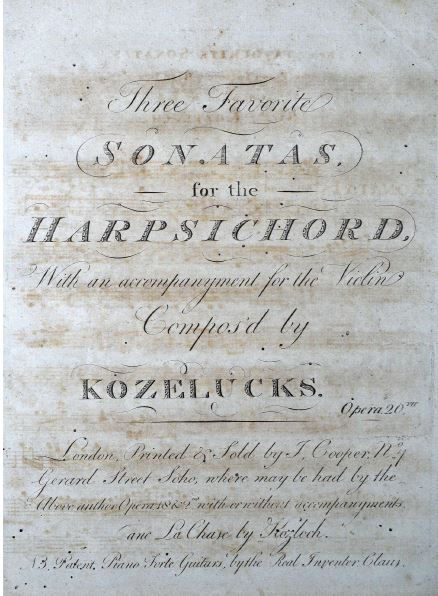 Three Favorite
SONATAS,
for the
HARPSICHORD,
With an accompanyment for the Violin
Compos'd by
KOZELUCKS.
Opera 20
London, Printed & Sold by J. Cooper, No
Gerard Street Soho, where may be had by the
Above author Opera with or without accompanyments,
and La Chase by Kozloch.
NB. Patent, Piano Forte Guitars, by the Real Inventer Claus.